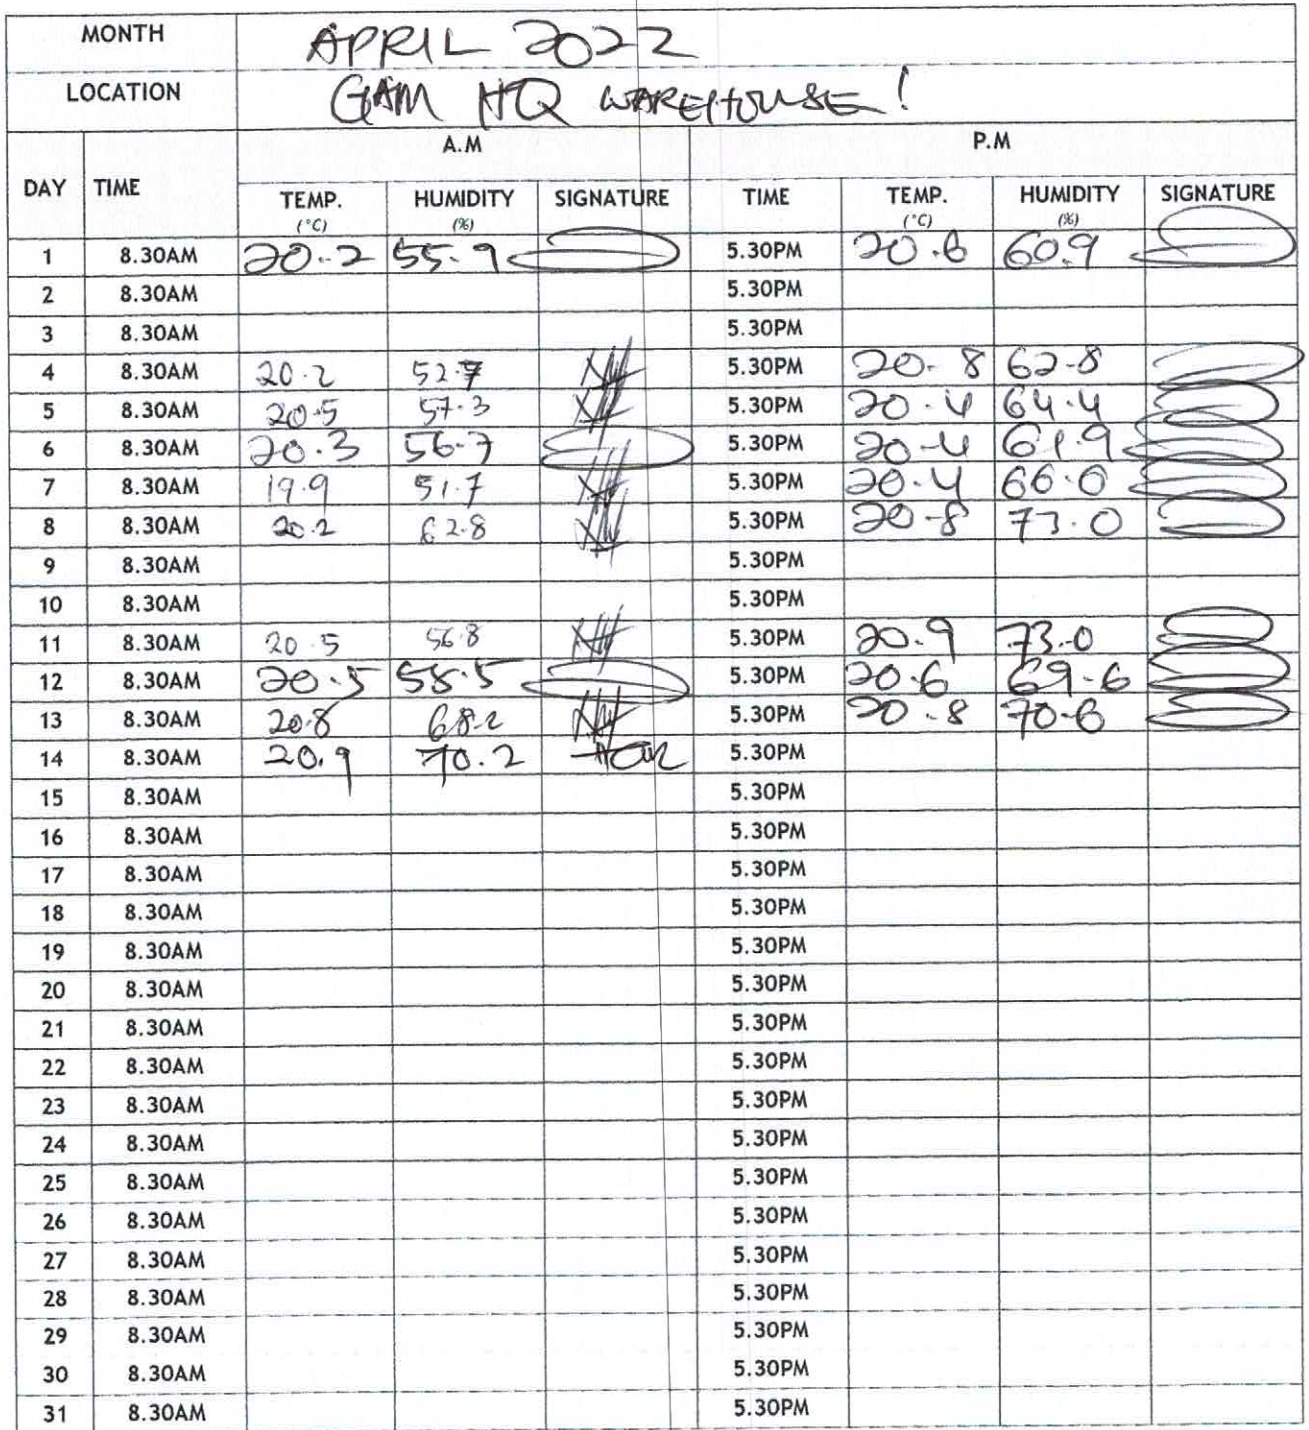 MONTH APRIL 2022
LOCATION GAM HQ WAREHOUSE!
A.M P.M
DAY TIME TEMP. (°C) HUMIDITY (%) SIGNATURE TIME TEMP. (°C) HUMIDITY (%) SIGNATURE
1 8.30AM 20.2 55.9 5.30PM 20.6 60.9
2 8.30AM 5.30PM
3 8.30AM 5.30PM
4 8.30AM 20.2 5.30PM 20.8 62.8
5 8.30AM 20.5 57.3 5.30PM 20.4 64.4
6 8.30AM 20.3 56.7 5.30PM 20.4 61.9
7 8.30AM 19.9 51.7 5.30PM 20.4 66.0
8 8.30AM 20.2 62.8 5.30PM 20.8 73.0
9 8.30AM 5.30PM
10 8.30AM 5.30PM
11 8.30AM 20.5 56.8 5.30PM 20.9 73.0
12 8.30AM 20.5 58.5 5.30PM 20.6 69.6
13 8.30AM 20.8 68.2 5.30PM 20.8 70.6
14 8.30AM 20.9 70.2 5.30PM
15 8.30AM 5.30PM
16 8.30AM 5.30PM
17 8.30AM 5.30PM
18 8.30AM 5.30PM
19 8.30AM 5.30PM
20 8.30AM 5.30PM
21 8.30AM 5.30PM
22 8.30AM 5.30PM
23 8.30AM 5.30PM
24 8.30AM 5.30PM
25 8.30AM 5.30PM
26 8.30AM 5.30PM
27 8.30AM 5.30PM
28 8.30AM 5.30PM
29 8.30AM 5.30PM
30 8.30AM 5.30PM
31 8.30AM 5.30PM